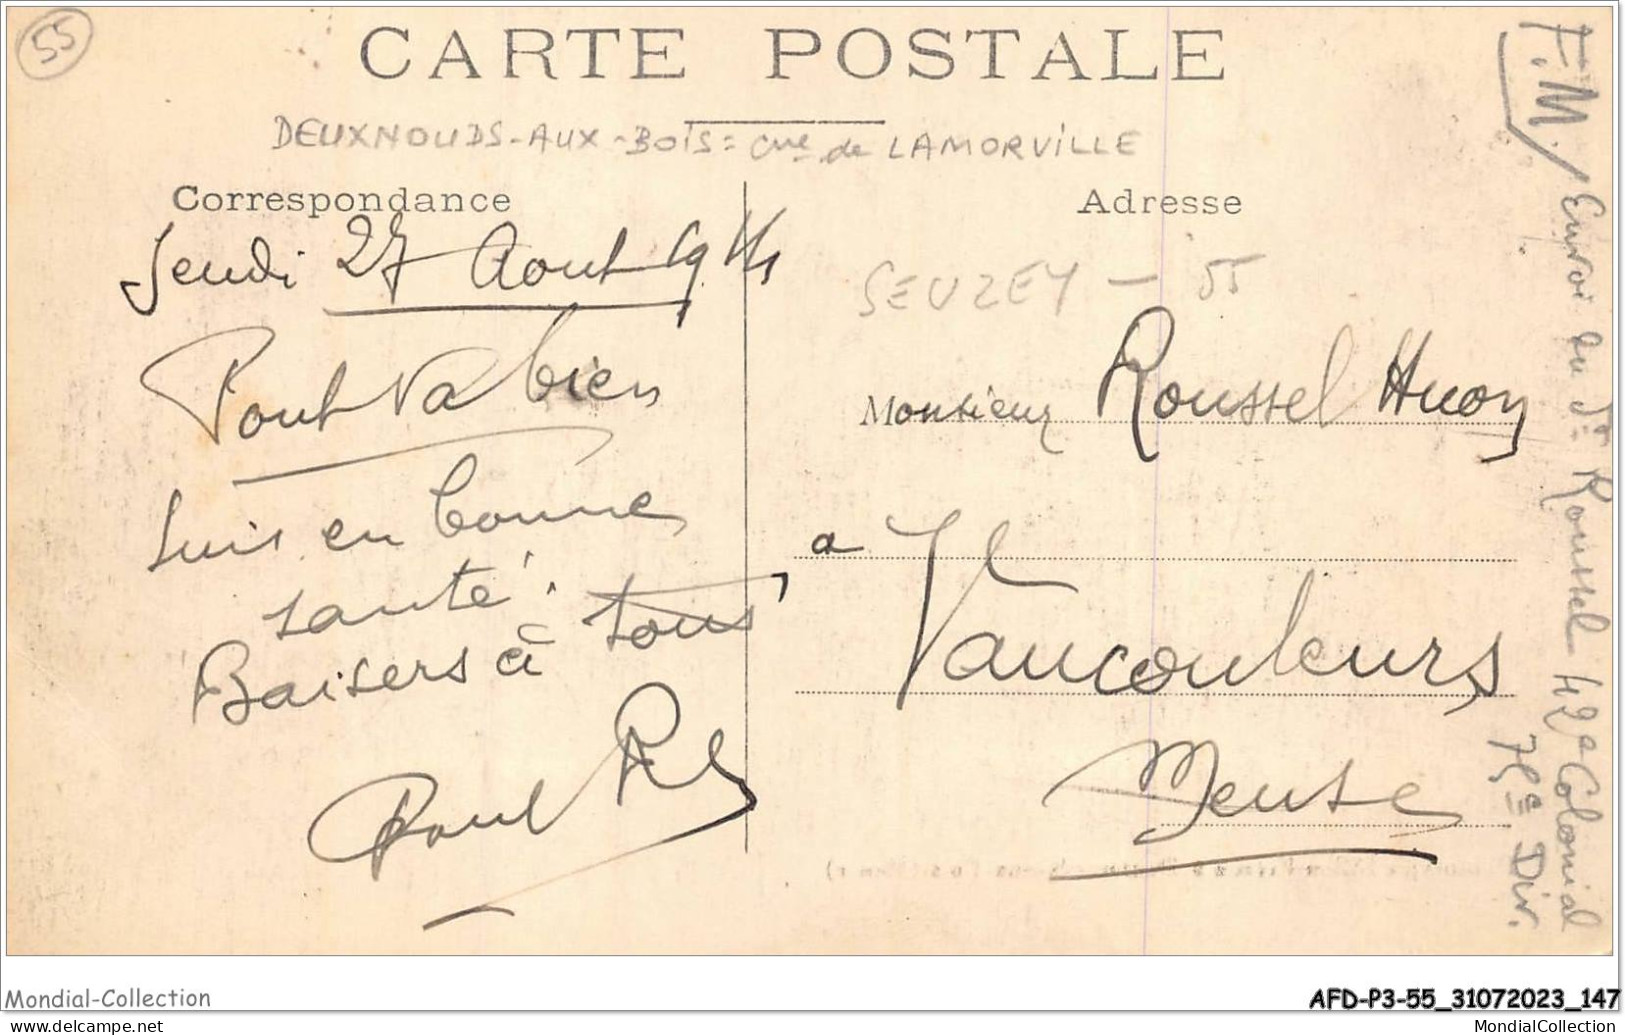 55
CARTE POSTALE
DEUXNOUDS-AUX-BOIS = cne de LAMORVILLE
Correspondance
Jeudi 27 Aout 1914
Tout va bien
suis en bonne
santé.
Baisers à tous
Paul
Adresse
SEUZEY - 55
Monsieur Roussel Huon
a
Vaucouleurs
Meuse
F.M. / Envoi du St Roussel 42e Colonial
75e Div.
Mondial-Collection
AFD-P3-55_31072023_147
www.delcampe.net
MondialCollection